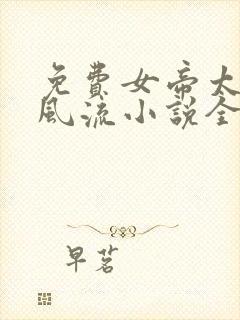 免費女帝太
風流小說全
早茗